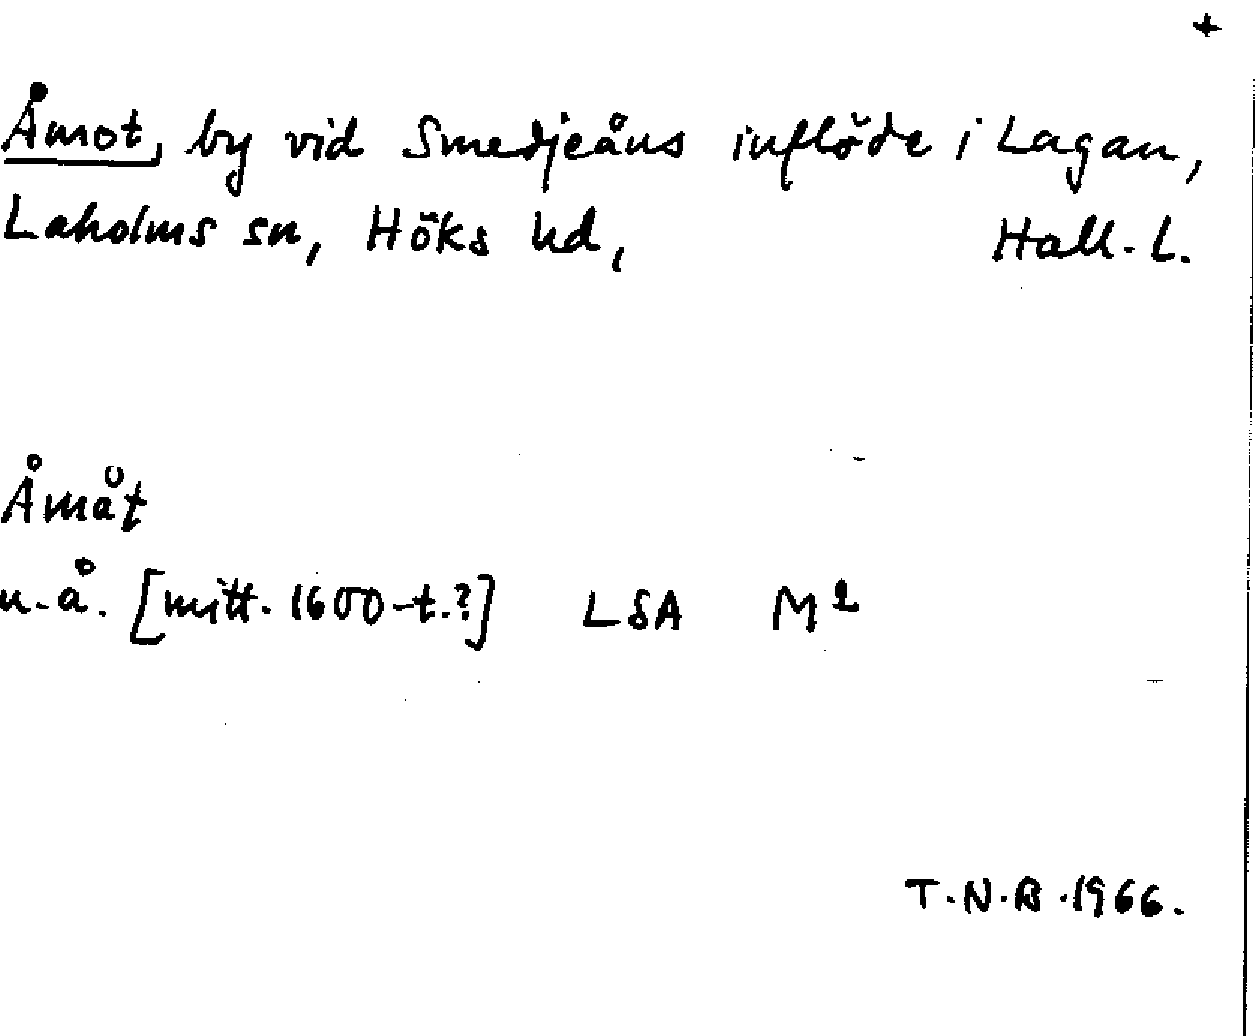 +
Åmot, by vid Smedjeåns inflöde i Lagan,
Laholms sn, Höks hd, Hall. l.
Åmåt
u.å. [mitt. 1600-t.?] LSA M²
T.N.B. 1966.